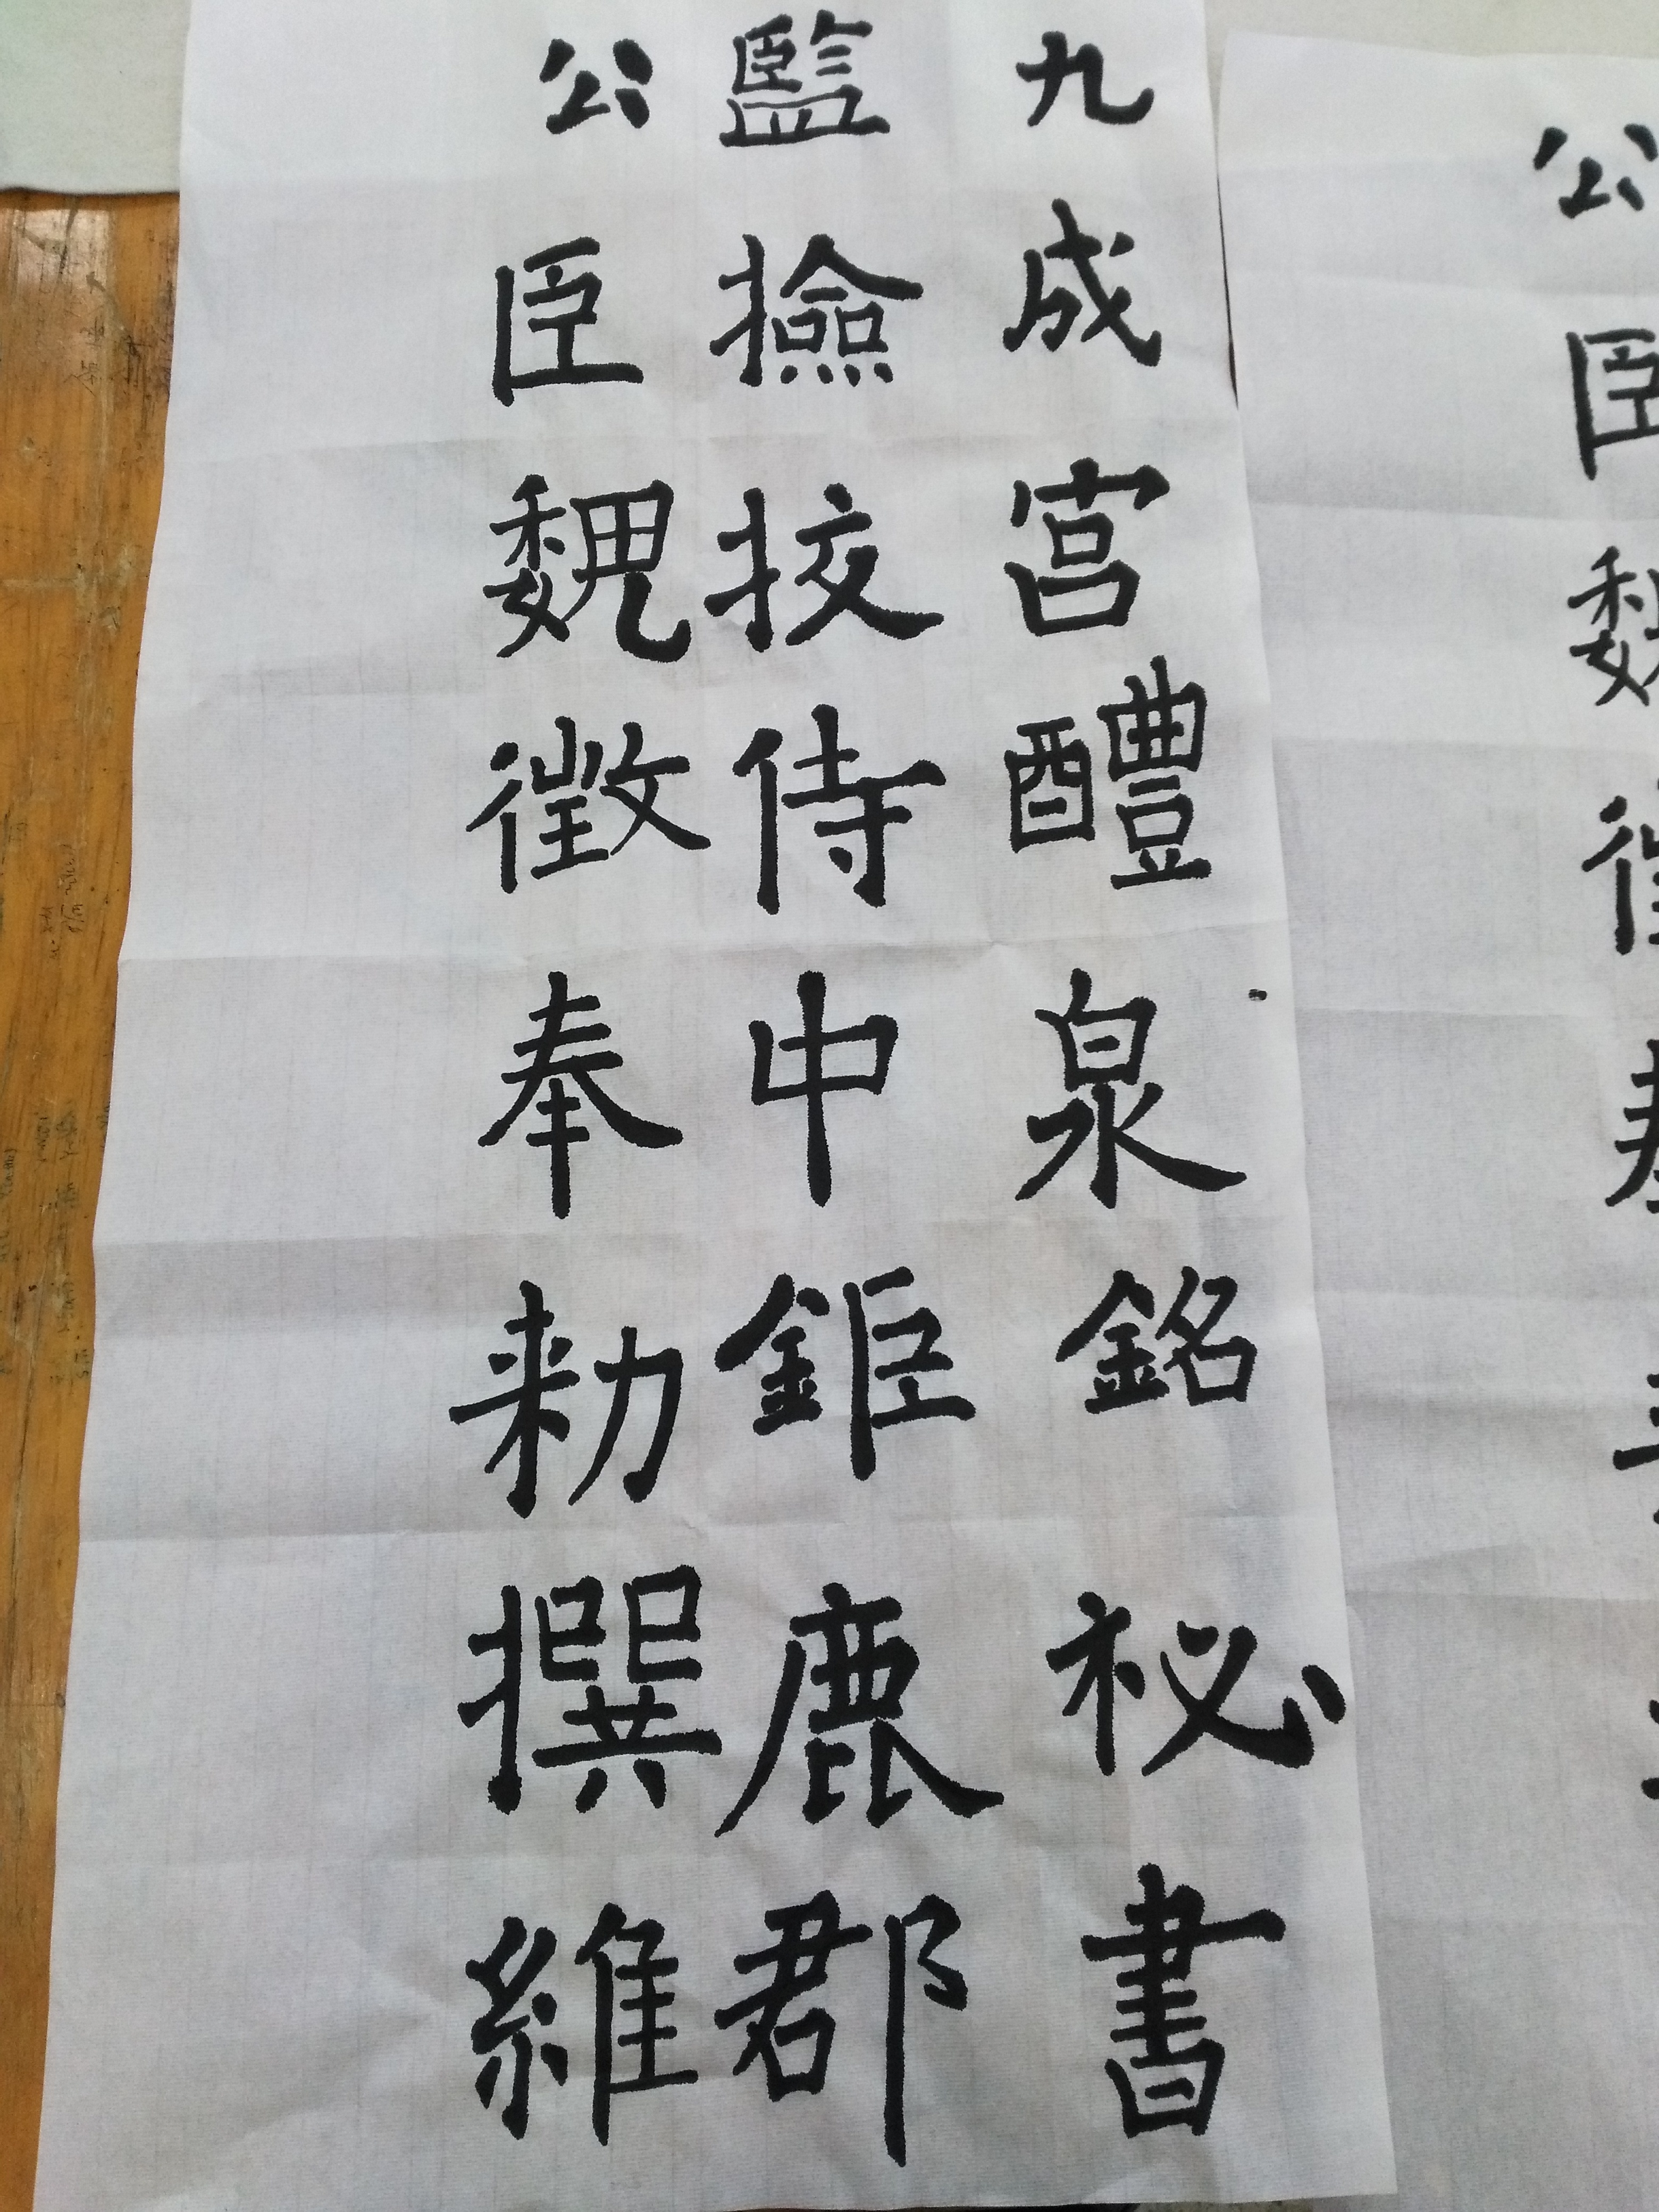 九成宮醴泉銘祕書
監撿挍侍中鉅鹿郡
公臣魏徵奉勑撰維
公臣魏